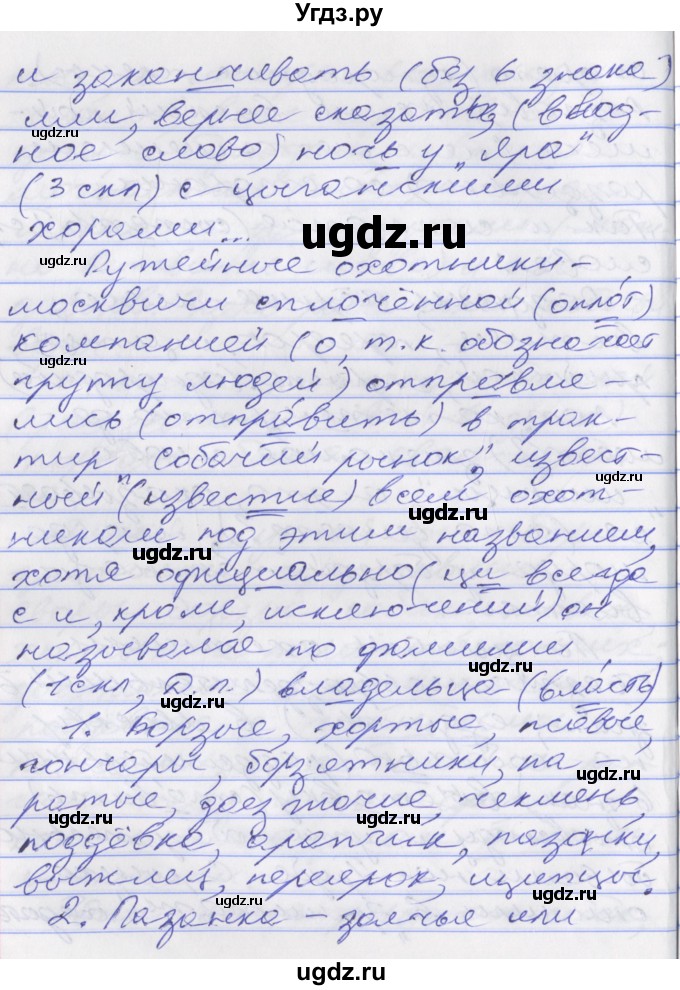 Угдз.ру
и заканчивать (без ь знака)
или, вернее сказать, (ввод-
ное слово) ночь у „Яра"
(3 скл) с цыганскими
хорами...
Ружейные охотники-
москвичи сплочённой (оплот)
компанией (о, т.к. обозначает
группу людей) отправля-
лись (отправить) в трак-
тир „Собачий рынок", извест-
ный (известие) всем охот-
никам под этим названием,
хотя официально (ци всегда
с и, кроме исключений) он
назывался по фамилии
(1 скл, Д.п.) владельца (власть)
1. Борзые, хортые, псовые,
гончары, борзятники, па-
ратые, доезжачие, чекмень,
поддёвка, арапчик, пазанки,
выжлец, переярок, щипцы.
2. Пазанка – заячья или
ugdz.ru